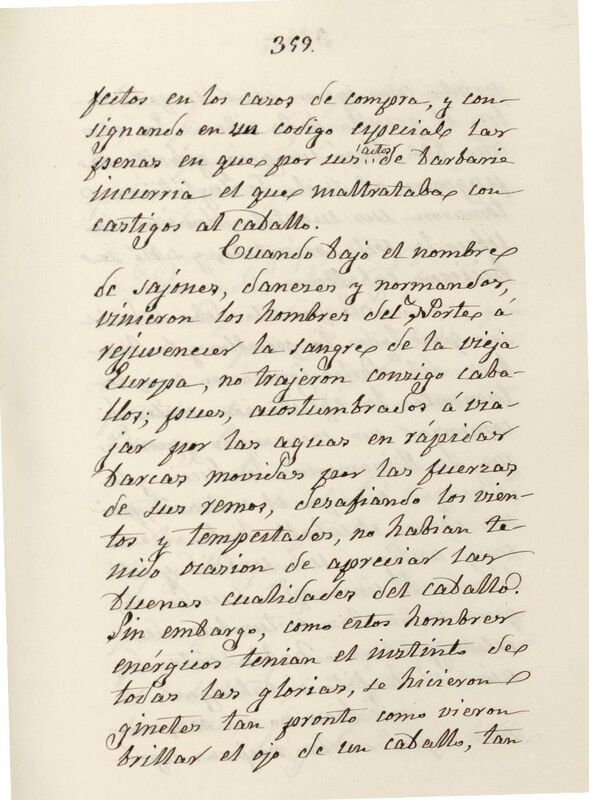 359.
fectos en los casos de compra, y con-
signando en un codigo especial las
penas en que por sus actos de barbarie
incurria el que maltrataba con
castigos al caballo.
Cuando bajo el nombre
de sajones, daneses y normandos,
vinieron los hombres del Norte á
rejuvenecer la sangre de la vieja
Europa, no trajeron consigo caba-
llos; pues, acostumbrados á via-
jar por las aguas en rápidas
barcas movidas por las fuerzas
de sus remos, desafiando los vien-
tos y tempestades, no habian te-
nido ocasion de apreciar las
buenas cualidades del caballo.
Sin embargo, como estos hombres
enérgicos tenian el instinto de
todas las glorias, se hicieron
ginetes tan pronto como vieron
brillar el ojo de un caballo, tan